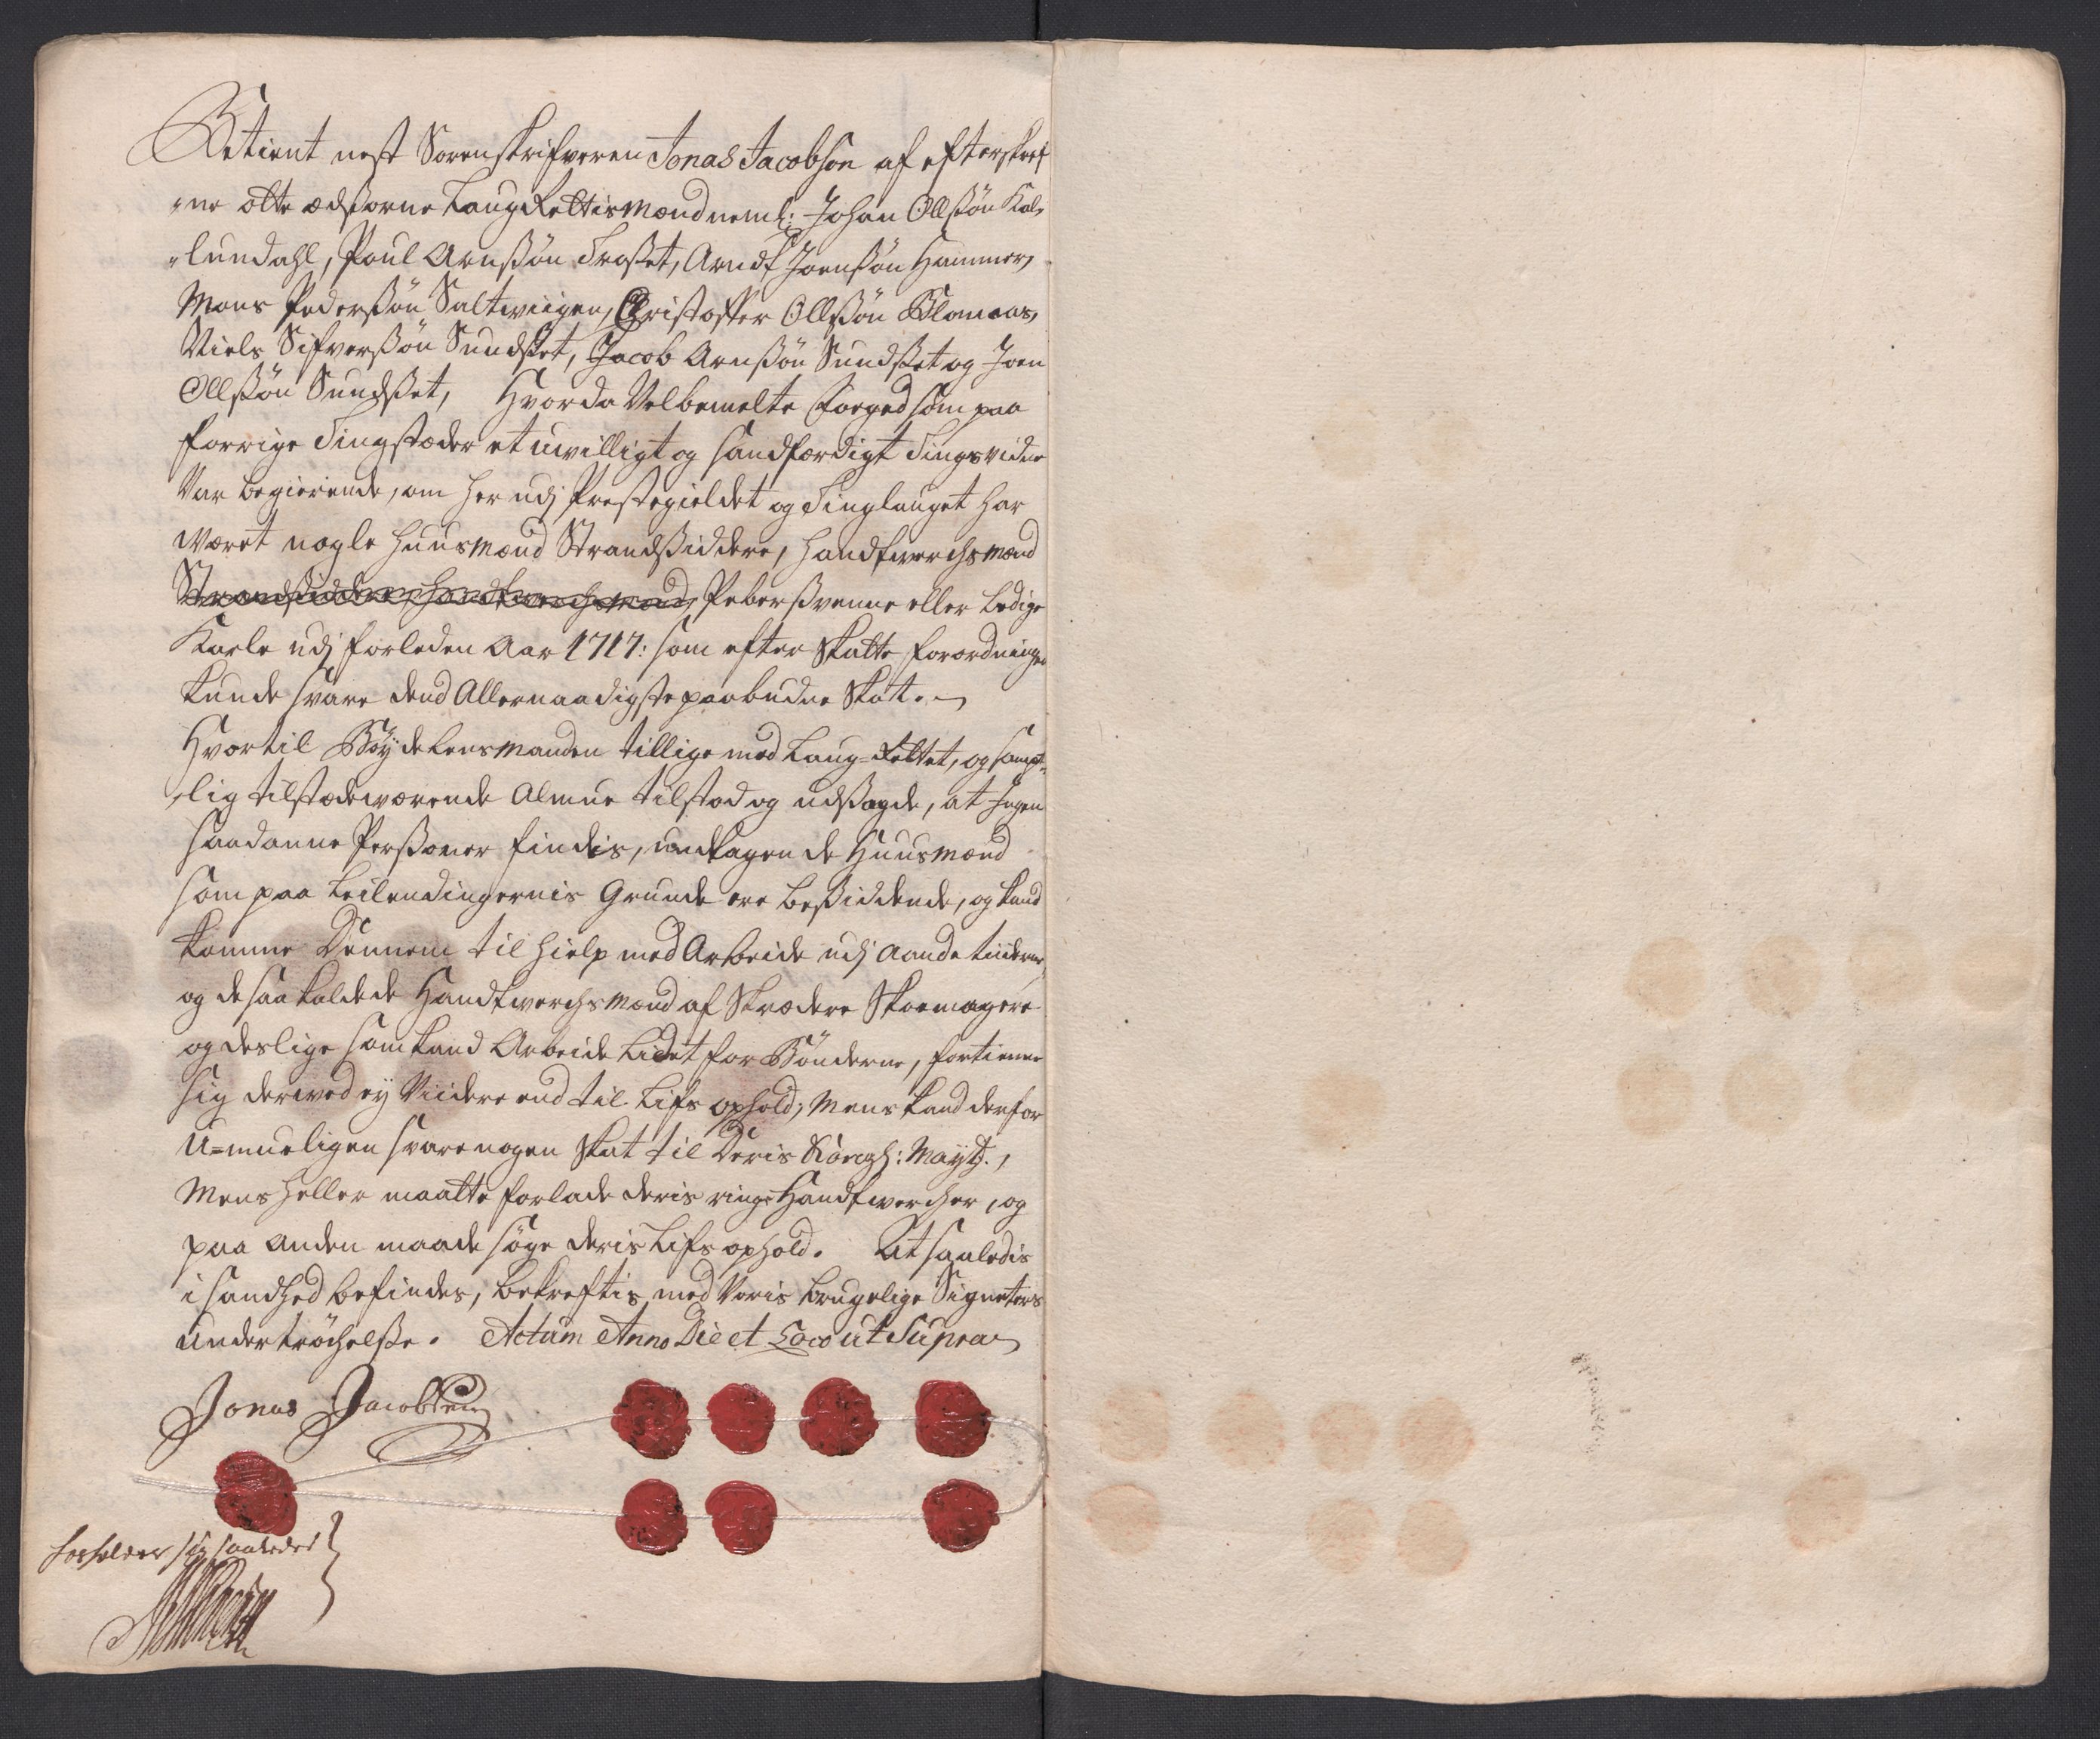 Betient nest Sorenskrifveren Jonas Jacobsen af efterskref
„ne otte ædsorne LaugRettismænd neml: Johan Ollssøn Kal„
„lundahl, Poul Arnssøn Trosset, Arndt Joenssøn Hammer,
Mons Pederssøn Saltwiigen, Christoffer Ollssøn Blomaas,
Niels Sifverssøn Sundsset, Jacob Arnssøn Sundsset og Joen
Ollssøn Sundsset, Hvorda Velbemelte Foeged som paa
forrige Tingstæder et uwilligt og sandfærdigt Tingsvidne
Var begierende, om her udj Prestegieldet og Tinglauget har
wæret nogle Huusmænd Strandssiddere, Handtwerchsmænd
Strandsiddere, Handtwerchsmænd, Peberssvenne eller Ledige
Karle udj forleden Aar 1717: som efter Skatte forordningen
kunde svare dend Allernaadigste paabudne Skat.
Hvortil Bøydelensmanden tillige med Laug-Rettet, og sampt„
„lig tilstædewærende Almue tilstod og udssagde, at Ingen
saadanne Perssoner findis, undtagen de Huusmænd
som paa Leilendingernis Grunde ere bessiddende, og kand
komme Dennem til hielp med Arbeide udj Aande tiiderne,
og de saa kaldede Handtwerchsmænd af Skrædere Skoemagere
og deslige som kand Arbeide Lidet for Bønderne, fortienne
sig derwed ey Viidere end til Lifs ophold; Mens kand derfor
U-mueligen svare nogen Skat til Deris Kongh: Mayts.,
Mens heller maatte forlade deris ringe Handtwercher, og
paa anden maade søge deris Lifs ophold. At saaledis
i sandhed befindes, bekreftis med Voris brugelige Signeters
undertrøchelsse. Actum Anno Die et Loco ut Supra
Jonas Jacobsen
forholder sig saaledes